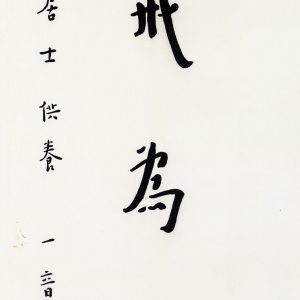 戒為
居士供養 一音